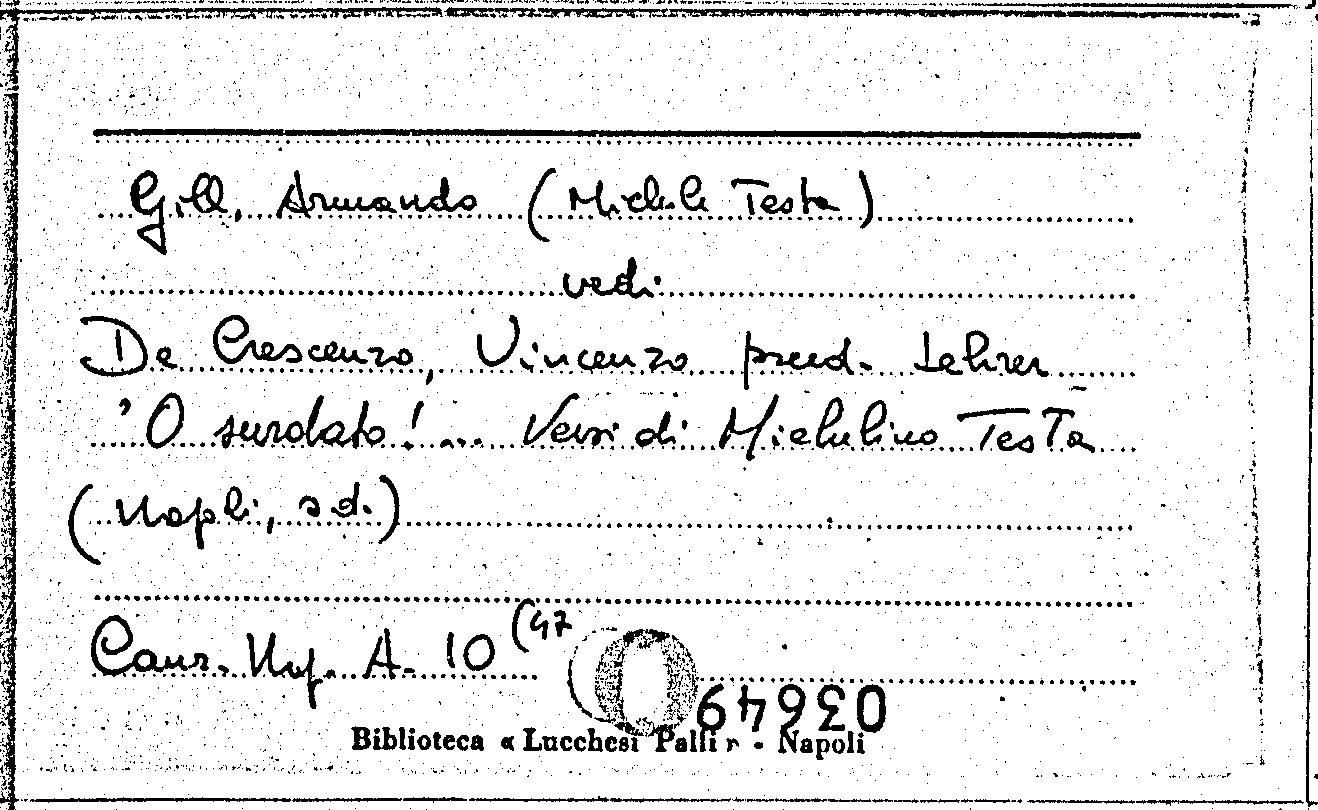 Gill, Armando (Michele Testa)
vedi
De Crescenzo, Vincenzo pseud.
'O surdato!... Versi di Michelino Testa
(Napoli, s.d.)
Canz. Nap. A. 10 (47
03649
Biblioteca « Lucchesi Palli » - Napoli